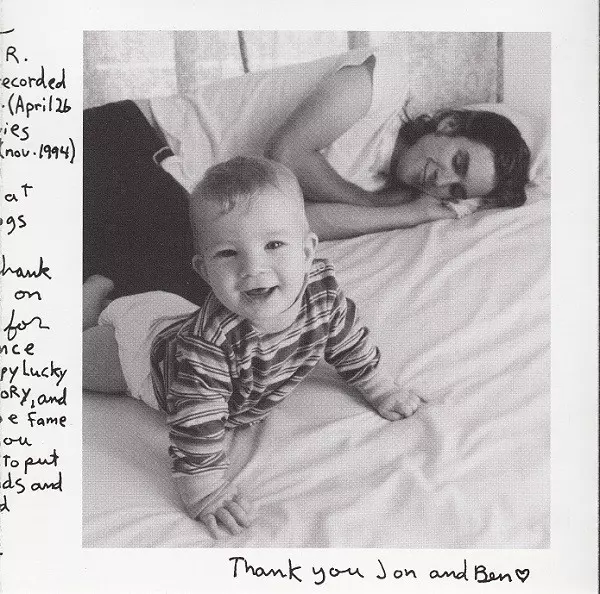 R.
ecorded
.(April 26
ies
(nov. 1994)
at
gs
hank
on
for
nce
py Lucky
ory, and
e Fame
ou
to put
ds and
d
Thank you Jon and Ben♡